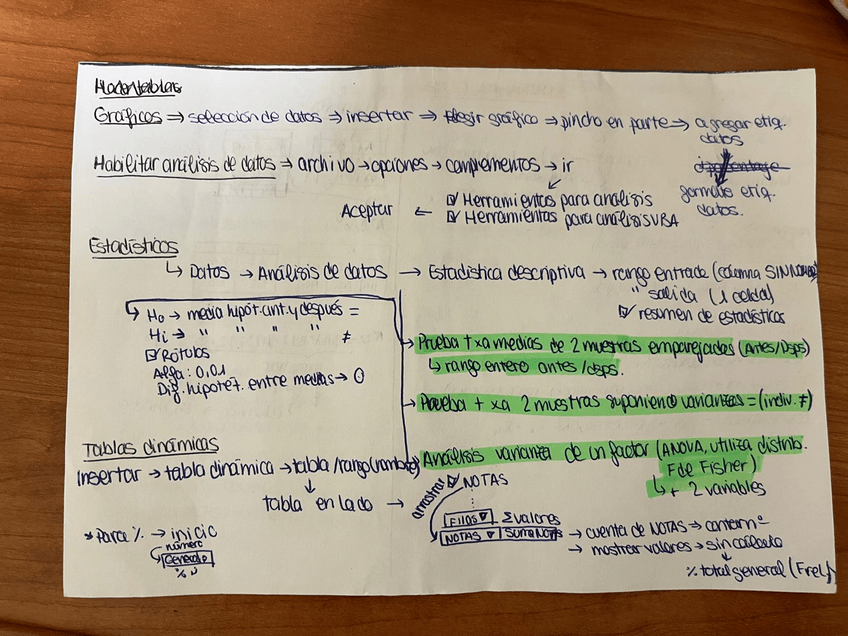 Hacer tablas
Gráficos ⇒ selección de datos ⇒ insertar ⇒ elegir gráfico ⇒ pincho en parte ⇒ agregar etiq.
datos
Habilitar análisis de datos → archivo → opciones → complementos → ir
formato etiq.
datos.
☑ Herramientas para análisis
Aceptar ← ☑ Herramientas para análisis VBA
Estadísticos
↳ Datos → Análisis de datos → Estadística descriptiva → rango entrada (columna SIN NOMBRE)
" salida (1 celda)
☑ resumen de estadísticas
H0 → media hipót. ant. y después =
Hi → " " " " ≠
☑ Rótulos
Alfa: 0,01
Dif. hipotét. entre medias → 0
→ Prueba t xa medias de 2 muestras emparejadas (Antes/Dsps)
↳ rango entero antes/dsps.
→ Prueba t xa 2 muestras suponiendo varianzas = (indiv. ≠)
Análisis varianza de un factor (ANOVA, utiliza distrib.
F de Fisher)
↳ + 2 variables
Tablas dinámicas
Insertar → tabla dinámica → tabla/rango (nombre)
↓
tabla en lado →
arrastrar
☑ NOTAS
⋮
FILAS ▼ Σ valores
NOTAS ▼ Suma Notas
→ cuenta de NOTAS → contar nº
→ mostrar valores → sin cálculo
↓
% total general (Frel)
* Para % → inicio
número
General
%